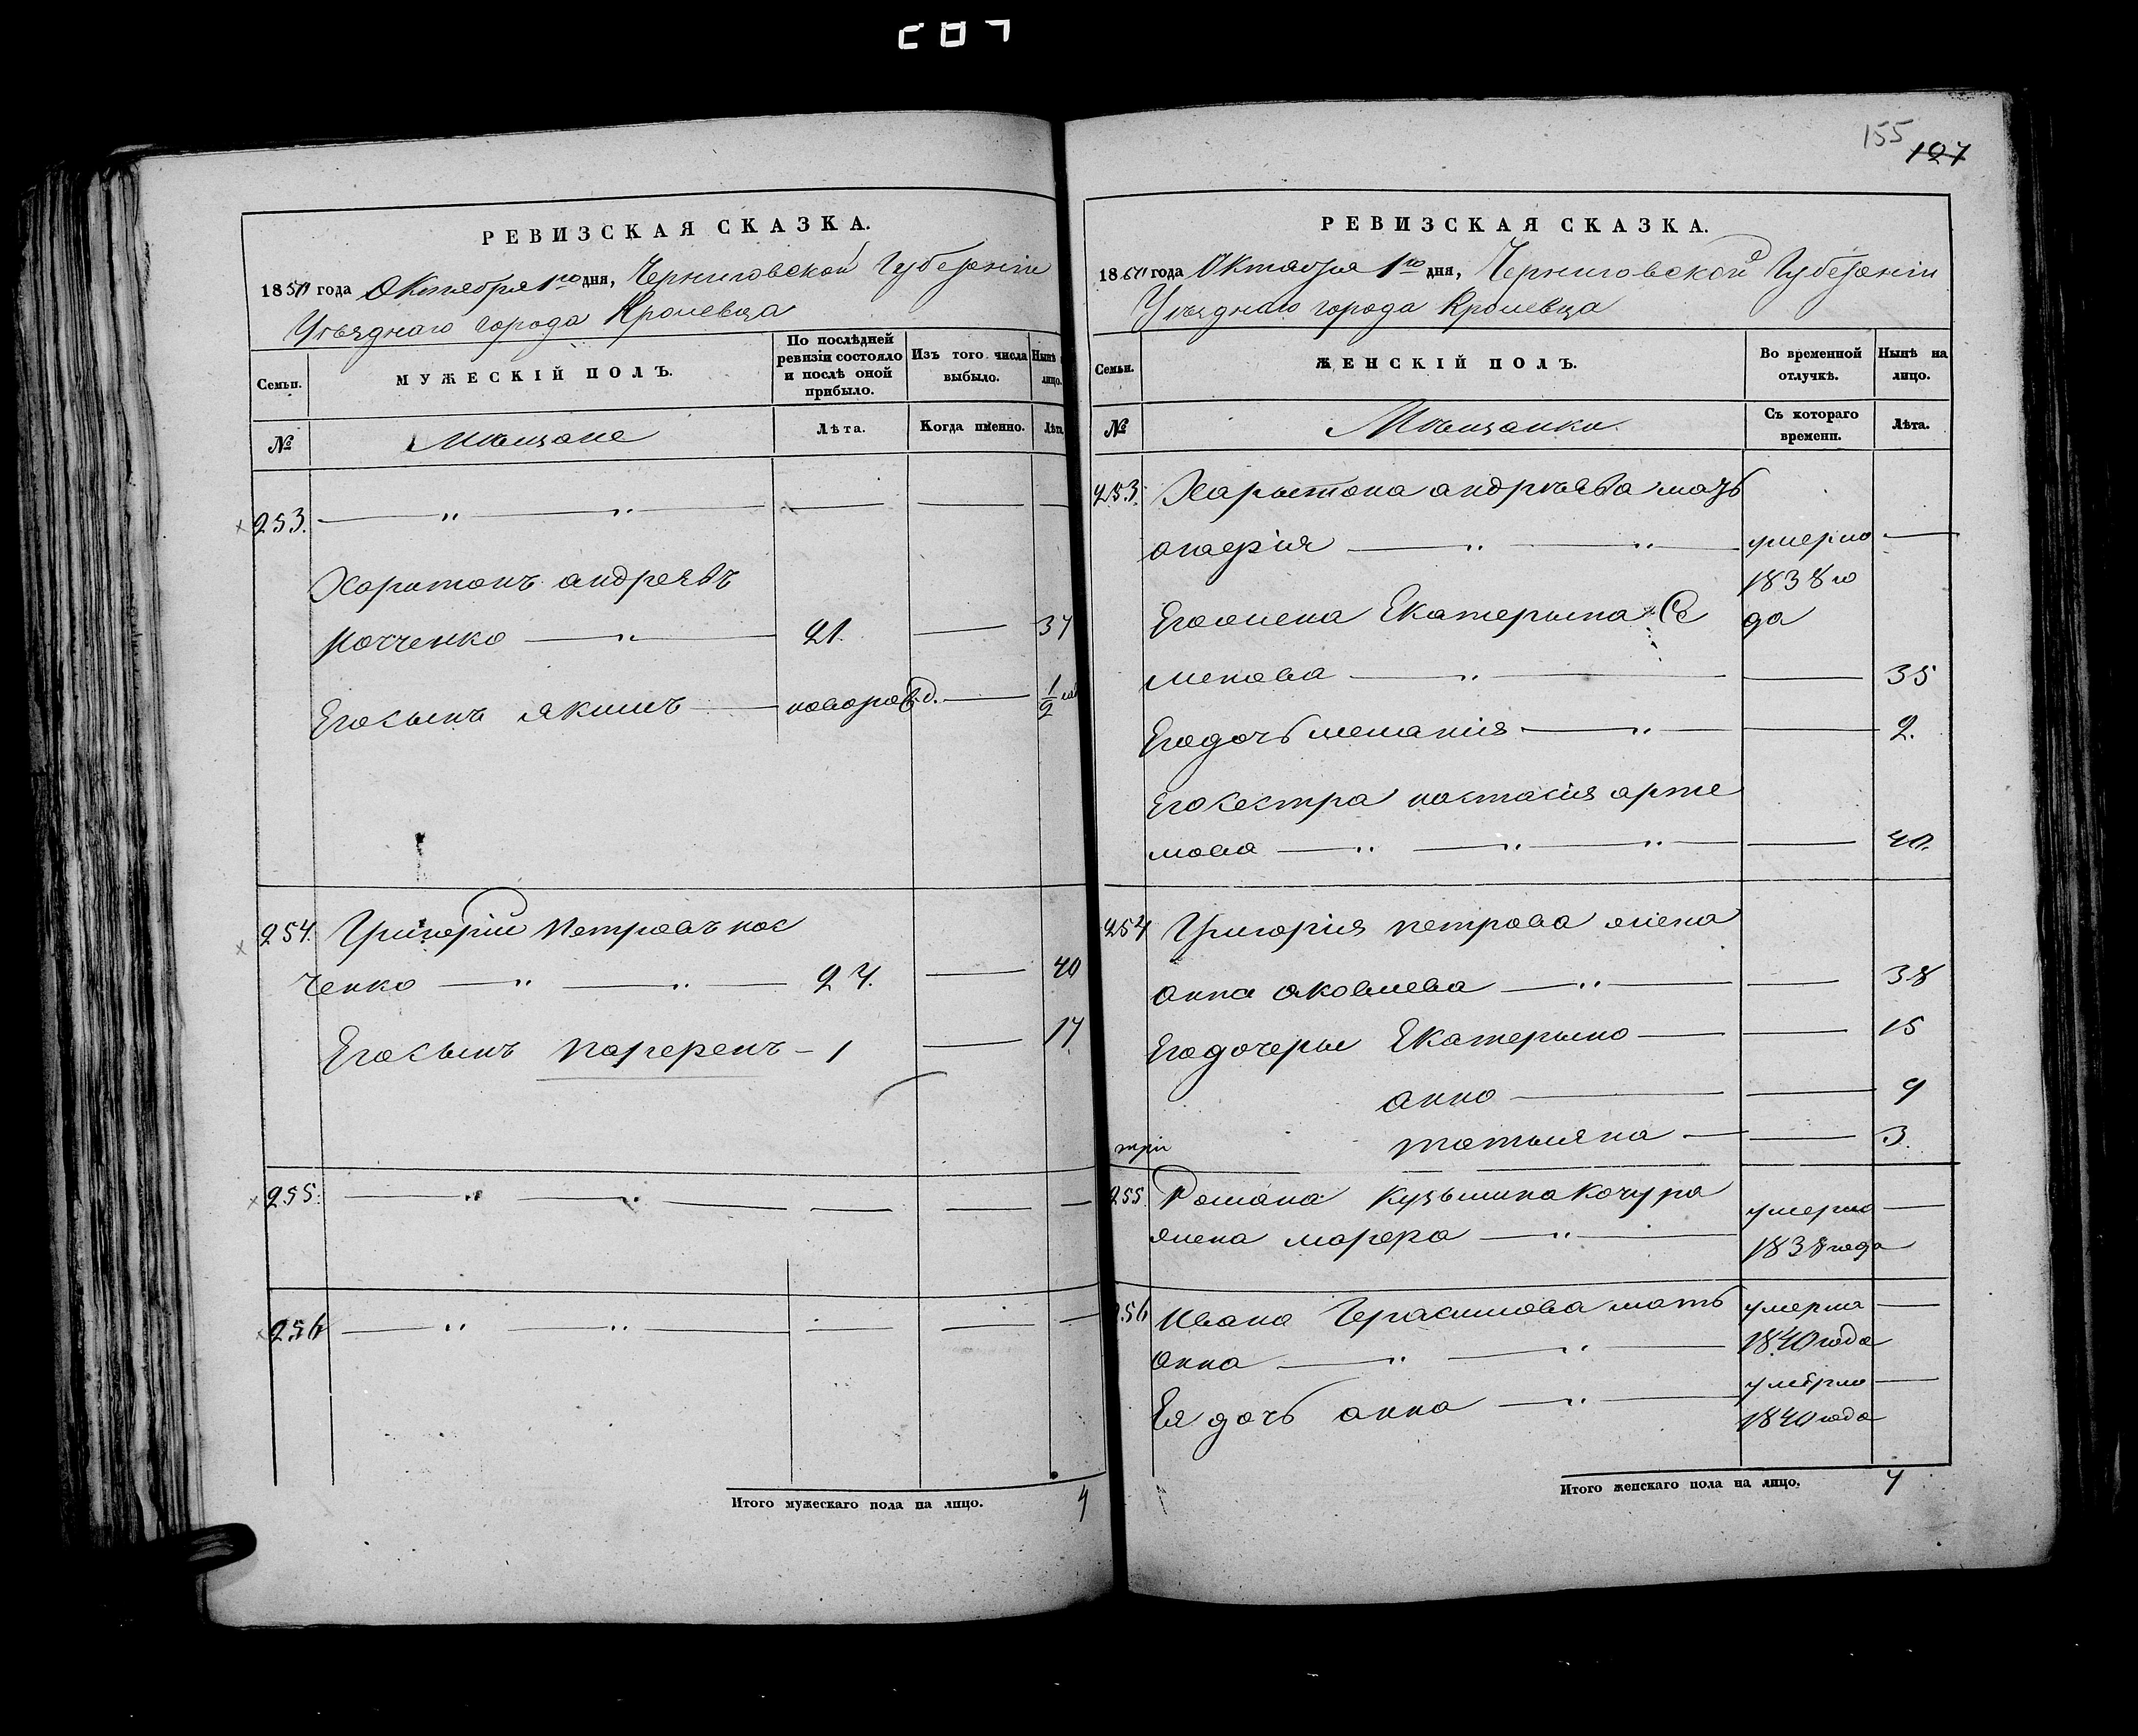 155
127
РЕВИЗСКАЯ СКАЗКА.
1850 года Октября 1го дня, Черниговской Губерніи
Уѣзднаго города Кролевца
Семьи.
МУЖЕСКІЙ ПОЛЪ.
По послѣдней ревизіи состояло и послѣ оной прибыло.
Изъ того числа выбыло.
Нынѣ лицо.
№
Мѣщане
Лѣта.
Когда именно.
Лѣта
253. — „ — „ — — — —
Харитонъ андреевъ
— „ — 21. — 37
Егосынъ якимъ — новорожд. — 1/2
254. Григорій Петровъ кос
ченко — „ — „ — 24. — 40
Егосынъ парфенъ — 1 — 17
255. — „ — „ — — — —
256 — „ — „ — — — —
Итого мужескаго пола на лицо. 4
РЕВИЗСКАЯ СКАЗКА.
1850 года Октября 1го дня, Черниговской Губерніи
Уѣзднаго города Кролевца
Семьи.
ЖЕНСКІЙ ПОЛЪ.
Во временной отлучкѣ.
Нынѣ на лицо.
№
Мѣщанки
Съ котораго времени.
Лѣта.
253. Харытона андрѣева мать
агафія — „ — „ — умерла —
1838 го
Егожена Екатерына Се
да
менова — „ — — 35
Егодочь меланія — „ — — 2.
Егосестра настасія арте
мова — „ — „ — „ — — 40.
254 Григорія петрова жена
анна яковлева — „ — — 38
Егодочеры Екатерына — — 15
анна — — 9
татьяна — — 3.
три
255. Романа Кузьмина Кочура
умерла —
жена марфа — „ —
1838 года
256 Ивана Герасимова мать умерла —
анна — „ — „ — 1840 года
умерла —
Ея дочь анна — „ —
1840 года
Итого женскаго пола на лицо. 7